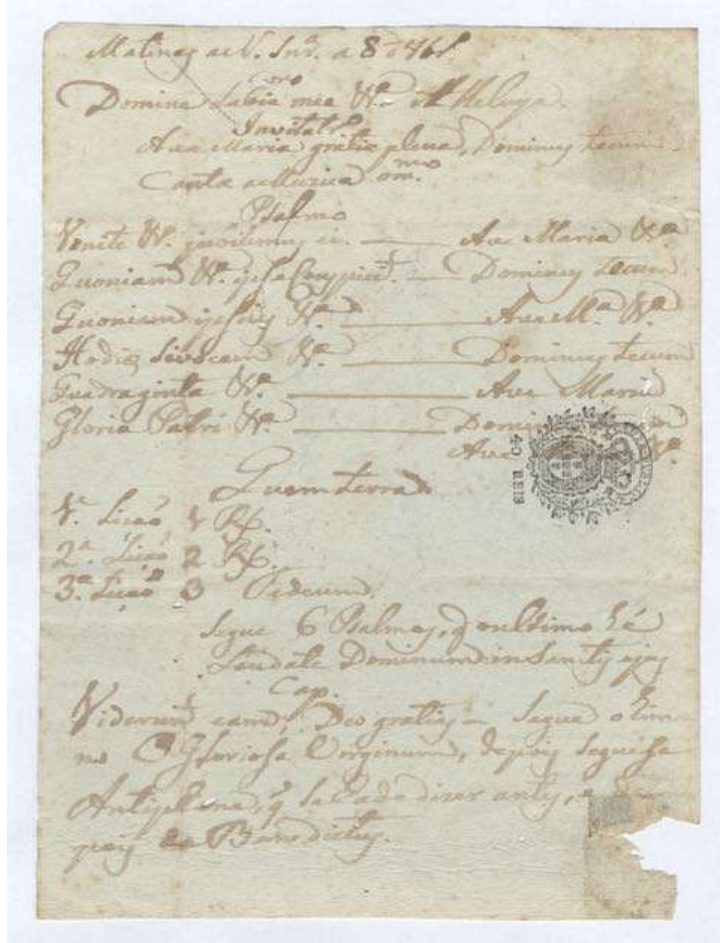 Matinas de N. Snr.ª a 8
Domine Labia mea Alleluya.
Invitat.º
Ave Maria gratia plena, Dominus tecum.
Canta a Muzica
Psalmo
Venite jubilemus ei. Ave Maria
Quoniam ipse Dominus tecum
Quoniam ipsius Ave M.ª
Hodie si vocem Dominus tecum
Quadraginta Ave Maria
Gloria Patri
Ave
40 REIS
Quem terra
1.ª Licaõ 1 Rp.
2.ª Licaõ 2 Rp.
3.ª Licaõ 3 Tedeum.
Segue 6 Psalmos, q̃ o ultimo hé
Laudate Dominum in Sanctis ejus
Cap.
Viderunt eam, Deo gratias - Segue o him-
no O Glorioza Virginum, depois seguesse
Antiphona, q̃ se ha de dizer antes, e de-
pois do Benedictus.